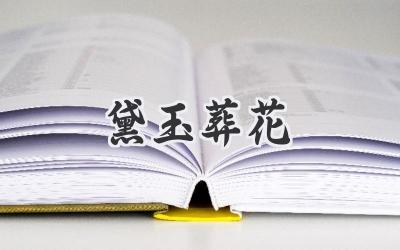 黛玉葬花